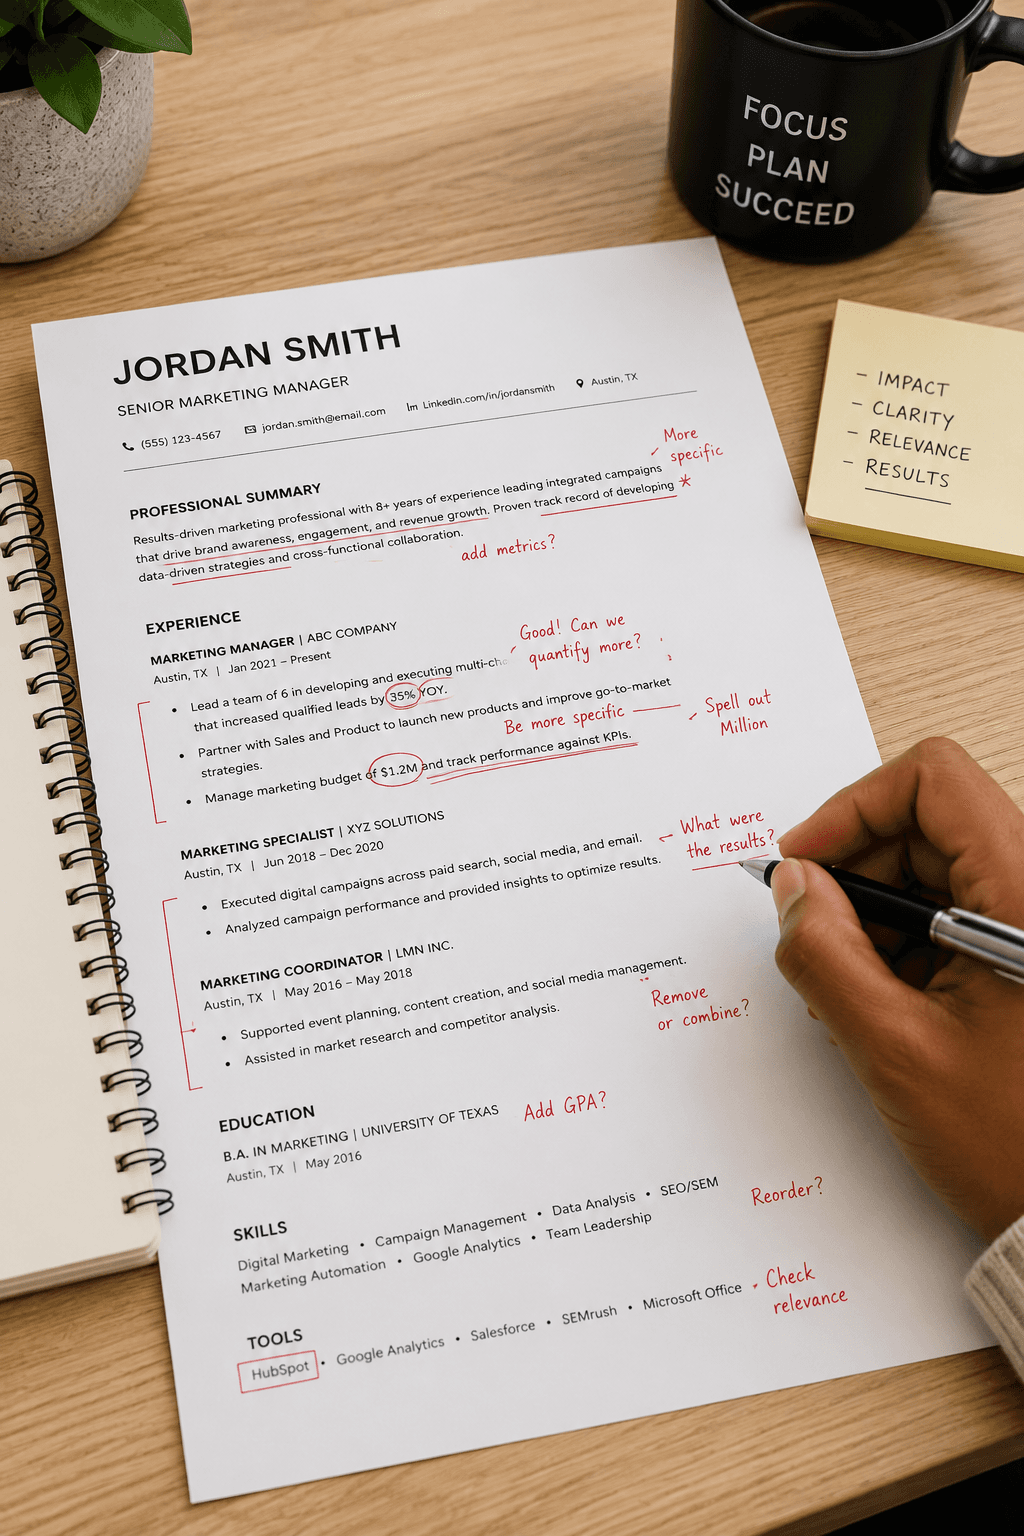 FOCUS
PLAN
SUCCEED
- IMPACT
- CLARITY
- RELEVANCE
- RESULTS
JORDAN SMITH
SENIOR MARKETING MANAGER
(555) 123-4567 jordan.smith@email.com in Linkedin.com/in/jordansmith Austin, TX
More
specific
PROFESSIONAL SUMMARY
Results-driven marketing professional with 8+ years of experience leading integrated campaigns
that drive brand awareness, engagement, and revenue growth. Proven track record of developing *
data-driven strategies and cross-functional collaboration.
add metrics?
EXPERIENCE
MARKETING MANAGER | ABC COMPANY
Austin, TX | Jan 2021 – Present
Good! Can we
quantify more?
• Lead a team of 6 in developing and executing multi-ch
that increased qualified leads by 35% YOY.
• Partner with Sales and Product to launch new products and improve go-to-market
strategies.
Be more specific
Spell out
Million
• Manage marketing budget of $1.2M and track performance against KPIs.
MARKETING SPECIALIST | XYZ SOLUTIONS
Austin, TX | Jun 2018 – Dec 2020
What were
the results?
• Executed digital campaigns across paid search, social media, and email.
• Analyzed campaign performance and provided insights to optimize results.
MARKETING COORDINATOR | LMN INC.
Austin, TX | May 2016 – May 2018
• Supported event planning, content creation, and social media management.
• Assisted in market research and competitor analysis.
Remove
or combine?
EDUCATION
B.A. IN MARKETING | UNIVERSITY OF TEXAS
Austin, TX | May 2016
Add GPA?
SKILLS
Digital Marketing • Campaign Management • Data Analysis • SEO/SEM
Marketing Automation • Google Analytics • Team Leadership
Reorder?
TOOLS
HubSpot • Google Analytics • Salesforce • SEMrush • Microsoft Office
Check
relevance